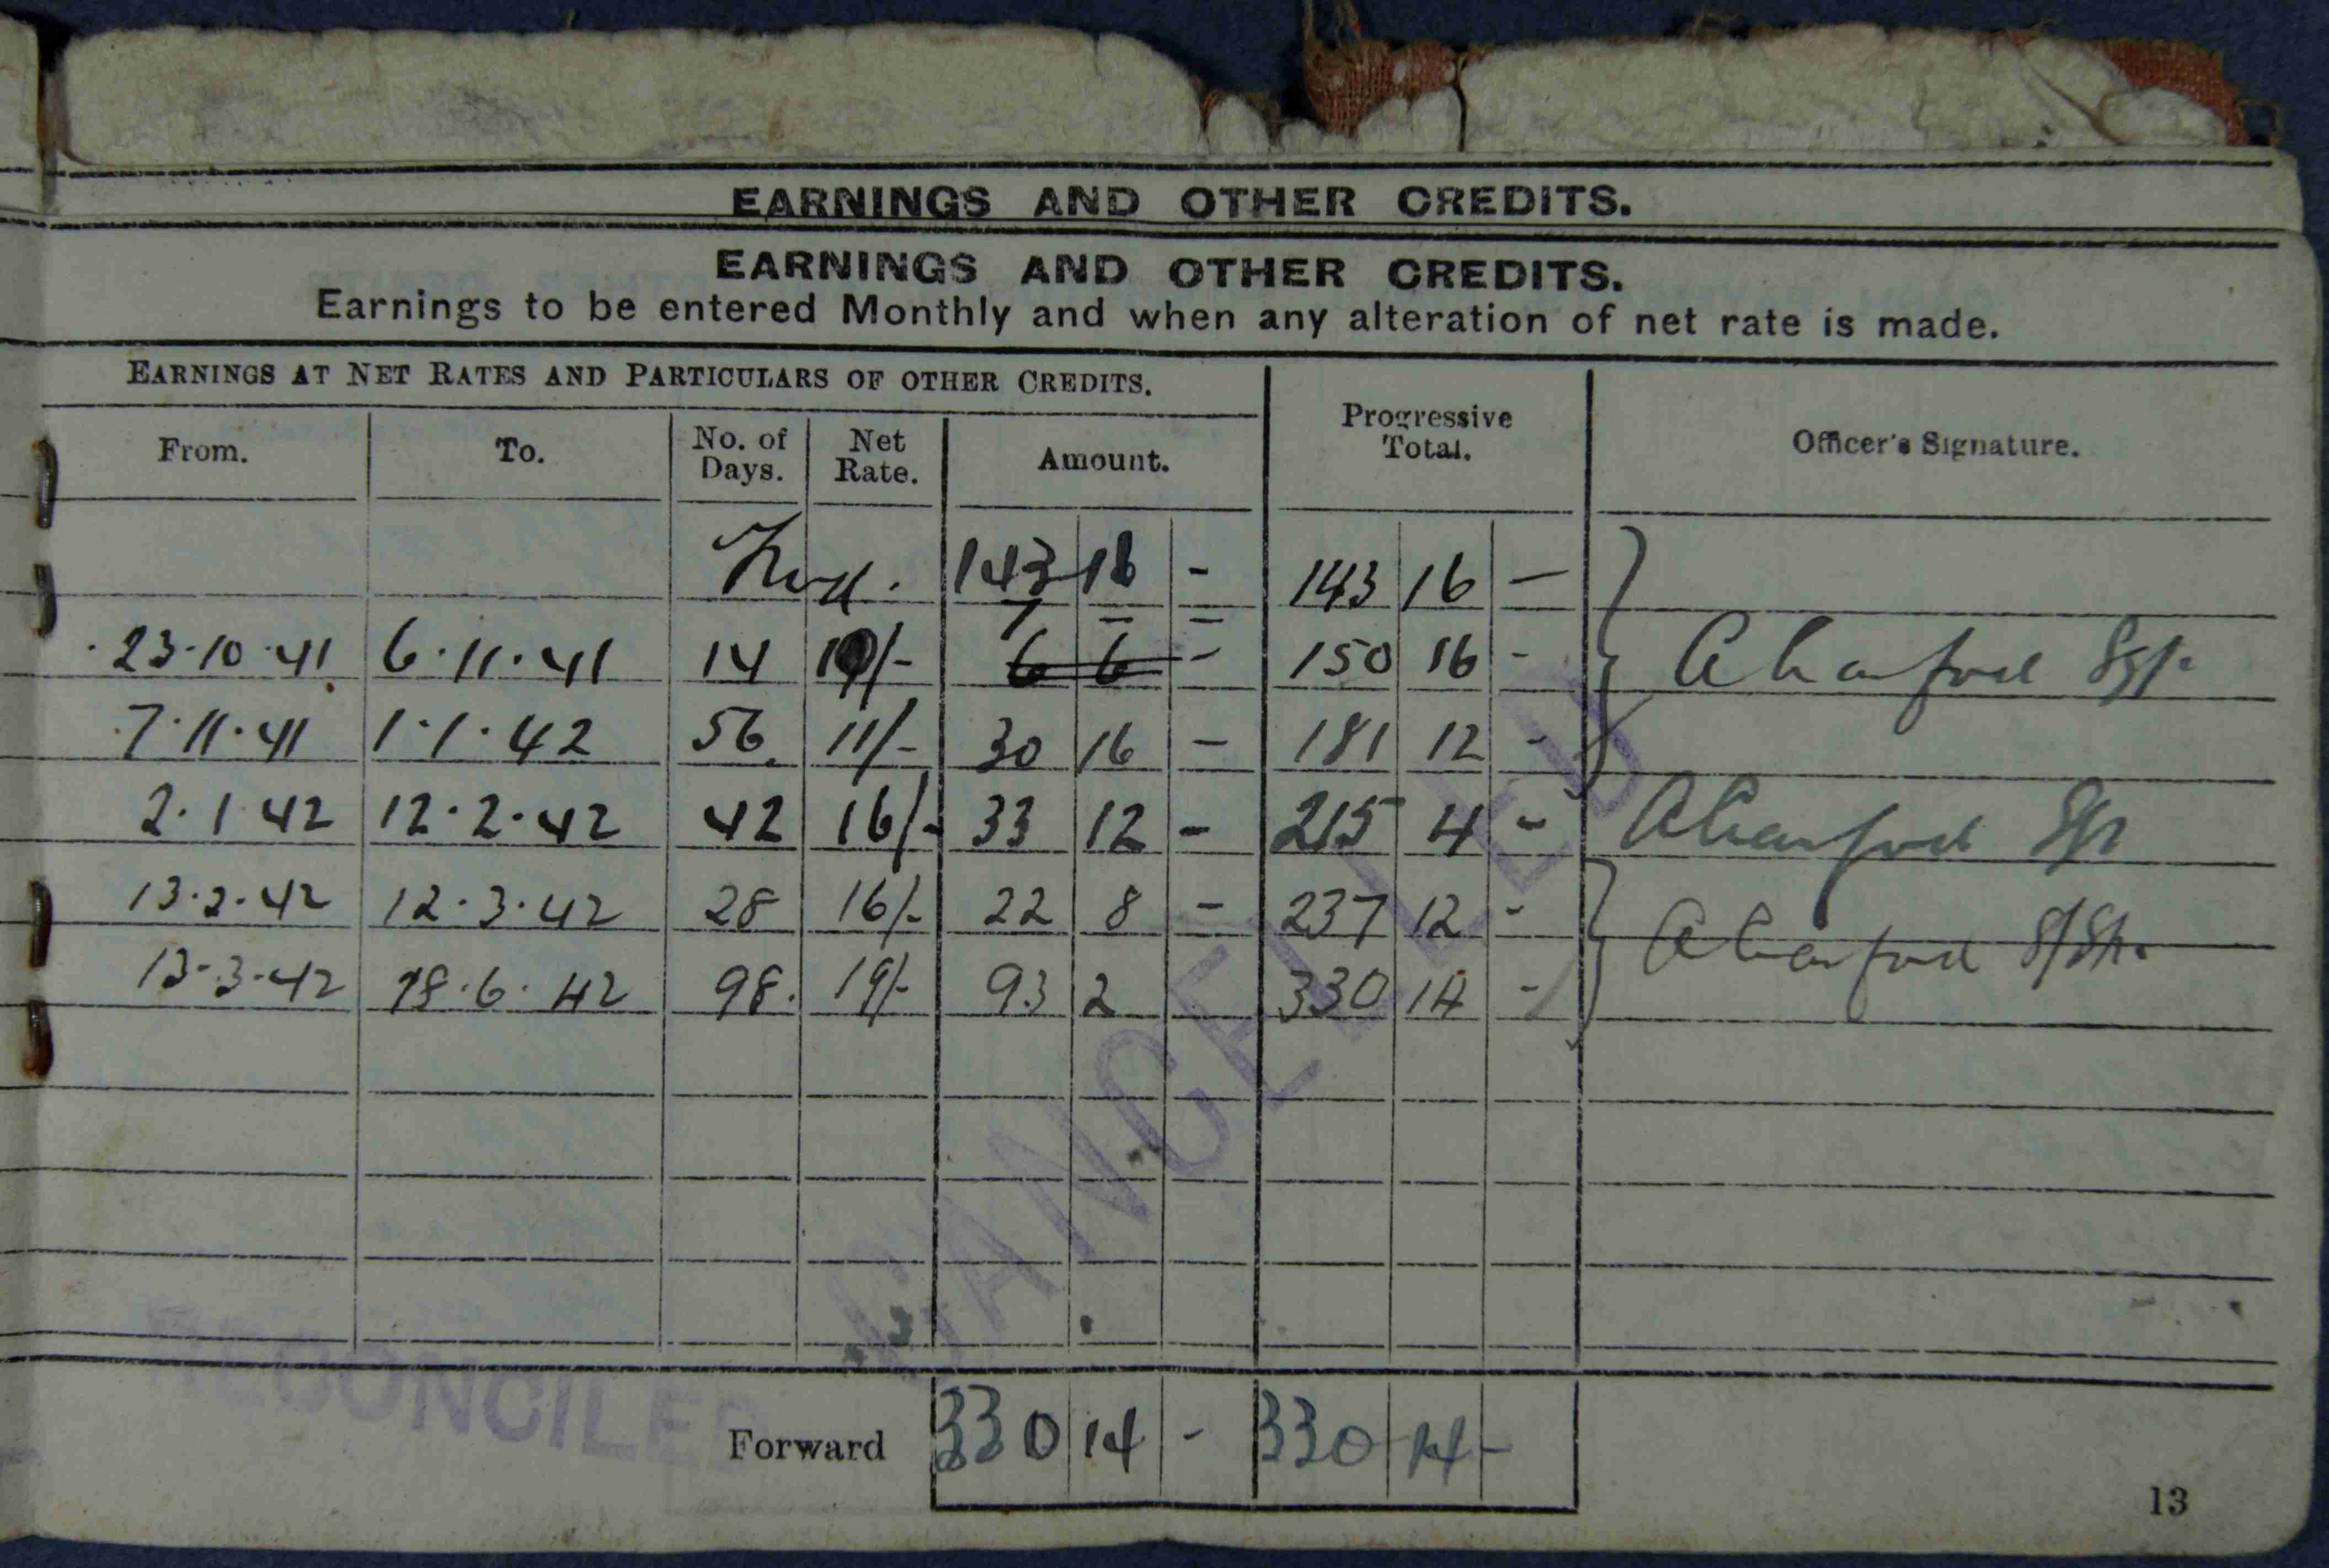 EARNINGS AND OTHER CREDITS.
EARNINGS AND OTHER CREDITS.
Earnings to be entered Monthly and when any alteration of net rate is made.
EARNINGS AT NET RATES AND PARTICULARS OF OTHER CREDITS. Progressive Total. Officer's Signature.
From. To. No. of Days. Net Rate. Amount.
Fwd. 143 16 - 143 16 -
7 - -
23.10.41 6.11.41 14 10/- 6 6 - 150 16 -
7.11.41 1.1.42 56 11/- 30 16 - 181 12 -
2.1.42 12.2.42 42 16/- 33 12 - 215 4 -
13.2.42 12.3.42 28 16/- 22 8 - 237 12 -
13.3.42 18.6.42 98. 19/- 93 2 330 14 -
CANCELLED
RECONCILED
Forward 330 14 - 330 14 -
13